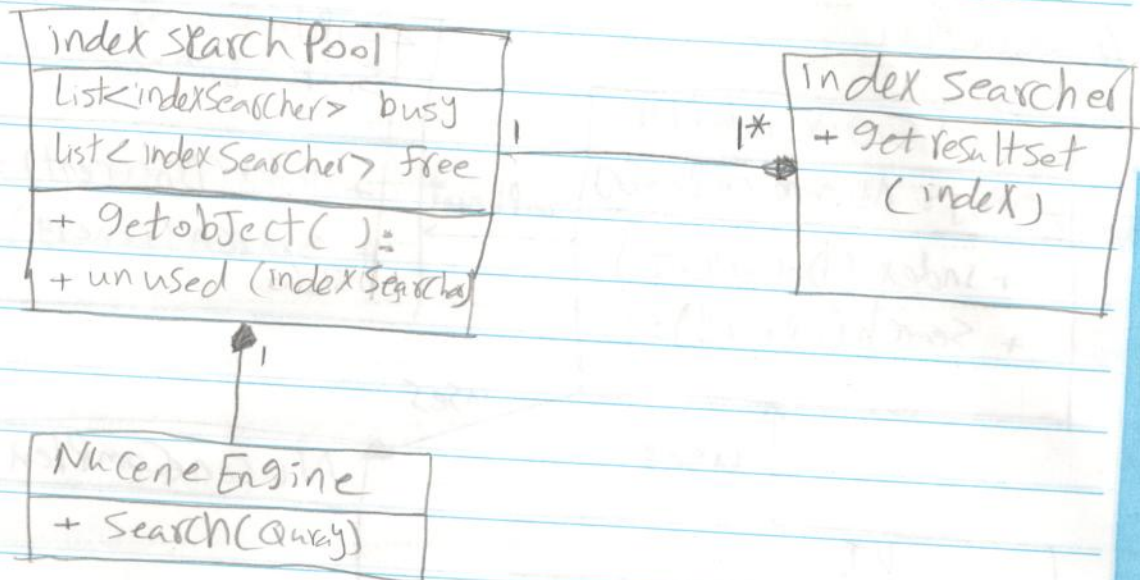 index search Pool
List<indexSearcher> busy
List<indexSearcher> free
+ getobJect( ):
+ unused (indexSearcher)
1
1*
index searcher
+ get resultset
(index)
1
NuceneEngine
+ Search(Quray)